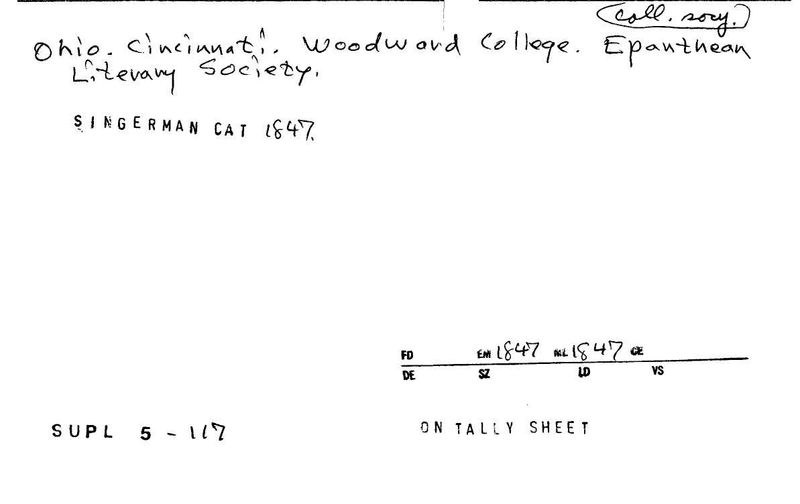 (coll. socy.)
Ohio. Cincinnati. Woodward College. Epanthean
Literary Society.
SINGERMAN CAT 1847.
FD EM 1847 ML 1847 CE
DE SZ LD VS
SUPL 5 - 117
ON TALLY SHEET